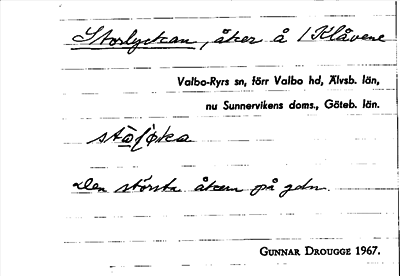 Storlyckan, åker å 1 Klåvene
Valbo-Ryrs sn, förr Valbo hd, Älvsb. län,
nu Sunnervikens doms., Göteb. län.
Den största åkern på gdn.
GUNNAR DROUGGE 1967.